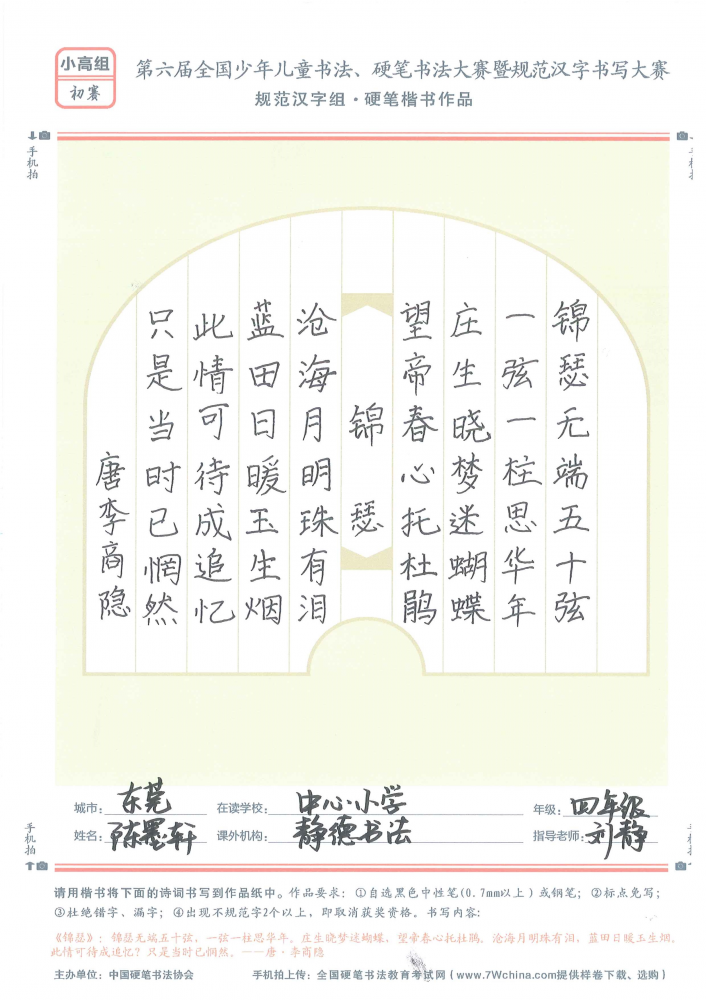 小高组
初赛
第六届全国少年儿童书法、硬笔书法大赛暨规范汉字书写大赛
规范汉字组·硬笔楷书作品
手机拍
手机拍
锦瑟无端五十弦
一弦一柱思华年
庄生晓梦迷蝴蝶
望帝春心托杜鹃
锦瑟
沧海月明珠有泪
蓝田日暖玉生烟
此情可待成追忆
只是当时已惘然
唐李商隐
城市：东莞 在读学校：中心小学 年级：四年级
姓名：陈墨轩 课外机构：静德书法 指导老师：刘静
手机拍
手机拍
请用楷书将下面的诗词书写到作品纸中。作品要求：①自选黑色中性笔(0.7mm以上）或钢笔；②标点免写；
③杜绝错字、漏字；④出现不规范字2个以上，即取消获奖资格。书写内容：
《锦瑟》：锦瑟无端五十弦，一弦一柱思华年。庄生晓梦迷蝴蝶，望帝春心托杜鹃。沧海月明珠有泪，蓝田日暖玉生烟。
此情可待成追忆？只是当时已惘然。——唐·李商隐
主办单位：中国硬笔书法协会 手机拍上传：全国硬笔书法教育考试网（www.7Wchina.com提供样卷下载、选购）